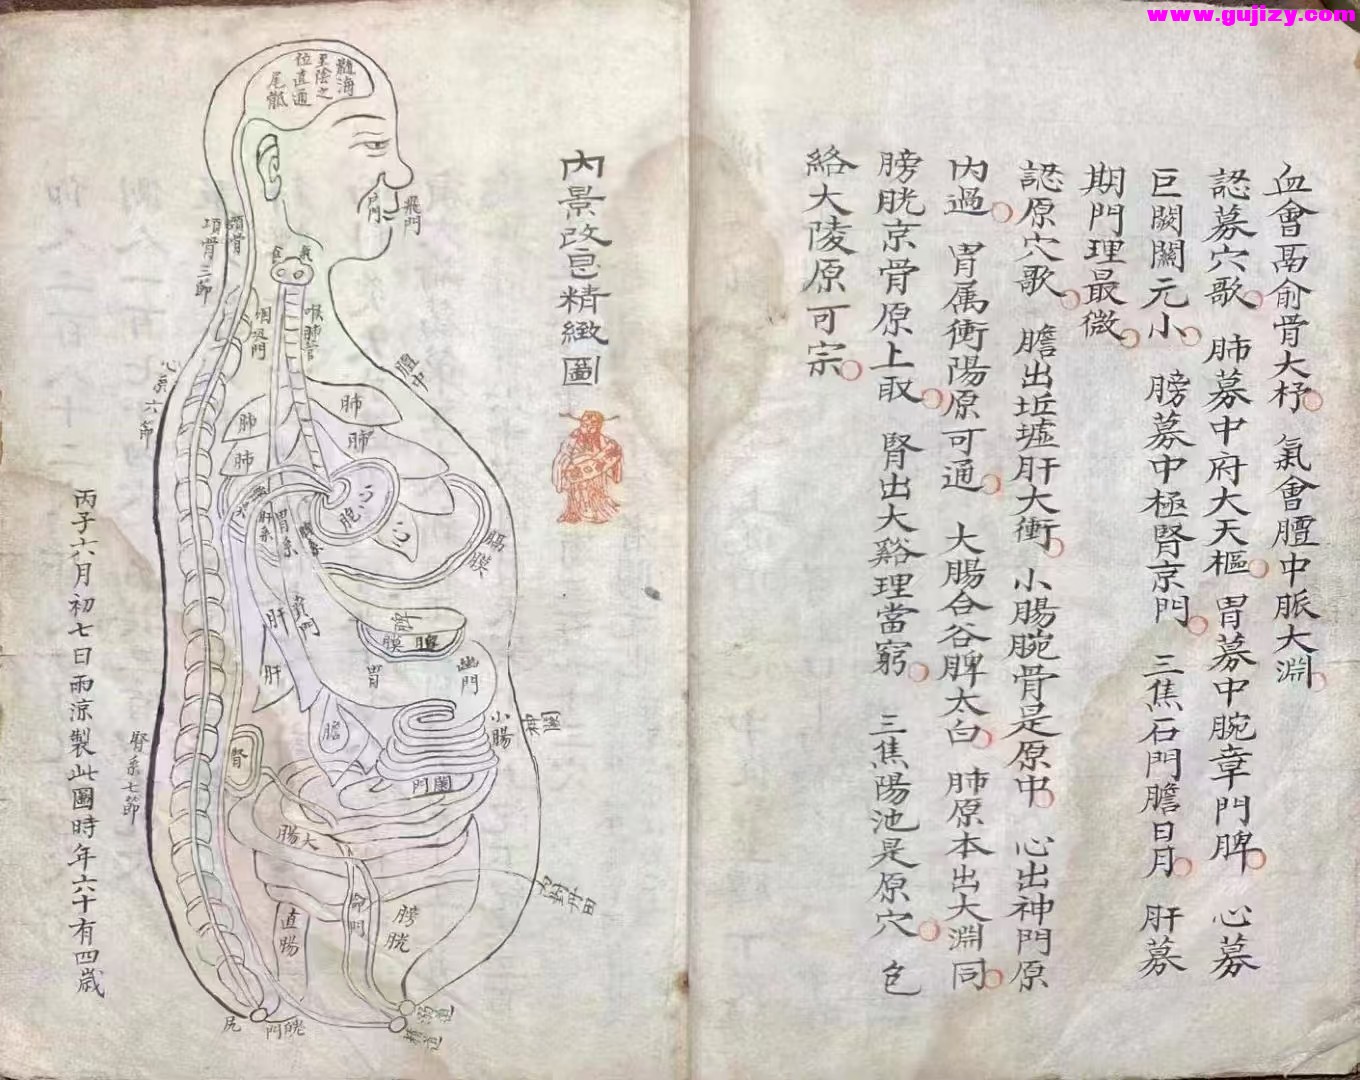 www.gujizy.com
血會鬲俞骨大杼 氣會膻中脈大淵
認募穴歌 肺募中府大天樞 胃募中腕章門脾 心募
巨闕關元小 膀募中極腎京門 三焦石門膽日月 肝募
期門理最微
認原穴歌 膽出坵墟肝大衝 小腸腕骨是原中 心出神門原
內過 胃属衝陽原可通 大腸合谷脾太白 肺原本出大淵同
膀胱京骨原上取 腎出大谿理當窮 三焦陽池是原穴 包
絡大陵原可宗
內景改皀精緻圖
髓海
至陰之
位直通
尾骶
飛門
項骨三節
頸骨
食
氣
喉肺管
咽
吸門
膻中
心系六節
肺
肺
肺
肺
肝系
胃系
膈膜
肝
肝
賁門
脾
膜
胃
幽門
膽
小腸
闌門
腎
腎系七節
大腸
直腸
命門
膀胱
丹田
尻
魄門
溺道
精道
丙子六月初七日雨涼製此圖時年六十有四歲